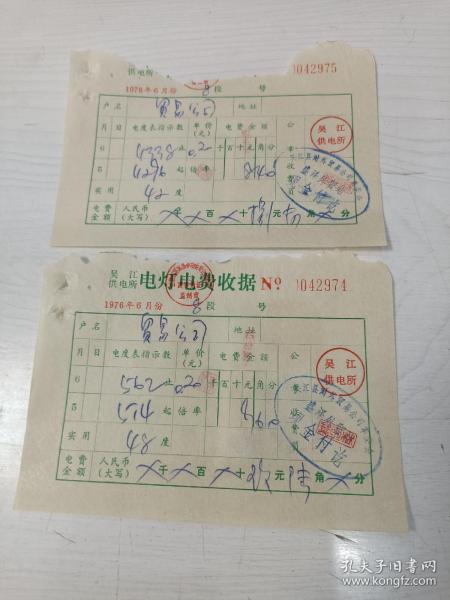 供电所 0042975
1976年6月份 8段 号
户名 贸易公司 地址
月 日 电度表指示数 单价(元) 电费金额 公
6 4338 止 0.2 千百十元角分
5 4296 起 倍率 840
实用 42度
电费金额 人民币(大写) ×千×百×十捌元肆角×分
吴江供电所
金付讫
吴江供电所 电灯电费收据 No 0042974
1976年6月份 8段 号
户名 贸易公司 地址
月 日 电度表指示数 单价(元) 电费金额 公
6 562 止 0.20 千百十元角分
5 514 起 倍率 960
实用 48度
电费金额 人民币(大写) ×千×百×十玖元陆角×分
吴江供电所
金付讫
孔夫子旧书网
www.kongfz.com